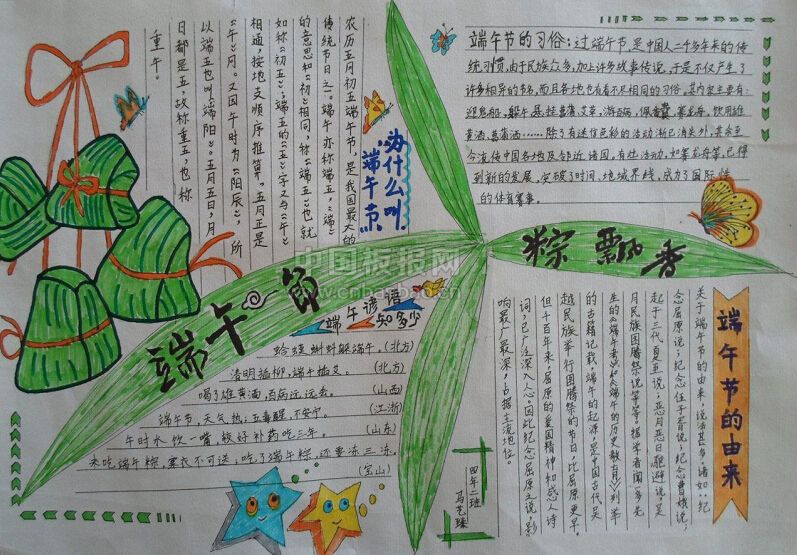 端午节
粽飘香
为什么叫
端午节
农历五月初五端午节,是我国最大的
传统节日之一。端午亦称端五,“端”
的意思和“初”相同,称“端五”也就
如称“初五”;端五的“五”字又与“午”
相通,按地支顺序推算,五月正是
“午”月。又因午时为“阳辰”,所
以端五也叫“端阳”。五月五日,月、
日都是五,故称重五,也称
重午。
端午节的习俗:过端午节,是中国人二千多年来的传
统习惯,由于民族众多,加上许多故事传说,于是不仅产生了
许多相异的节名,而且各地也有着不尽相同的习俗。其内容主要有:
迎鬼船,躲午,悬挂菖蒲、艾草,游百病,佩香囊,赛龙舟,饮用雄
黄酒、菖蒲酒……除了有迷信色彩的活动渐已消失外,其余至
今流传中国各地及邻近诸国。有些活动,如赛龙舟等,已得
到新的发展,突破了时间、地域界线,成为了国际性
的体育赛事。
端午谚语
知多少
蛤蟆蝌蚪躲端午。(北方)
清明插柳,端午插艾。(北方)
喝了雄黄酒,百病远远丢。(山西)
端午节,天气热;五毒醒,不安宁。(江浙)
午时水饮一嘴,较好补药吃三年。(山东)
未吃端午粽,寒衣不可送;吃了端午粽,还要冻三冻。
(宝山)
端午节的由来
关于端午节的由来,说法甚多,诸如:纪
念屈原说;纪念伍子胥说;纪念曹娥说;
起于三代夏至说;恶月恶日驱避说,吴
月民族图腾祭说等等。据学者闻多先
生的《端午考》和《端午的历史教育》列举
的古籍记载,端午的起源,是中国古代吴
越民族举行图腾祭的节日,比屈原更早。
但千百年来,屈原的爱国精神和感人诗
词,已广泛深入人心。因此纪念屈原之说,影
响最广最深,占据主流地位。
四年二班
中国板报网